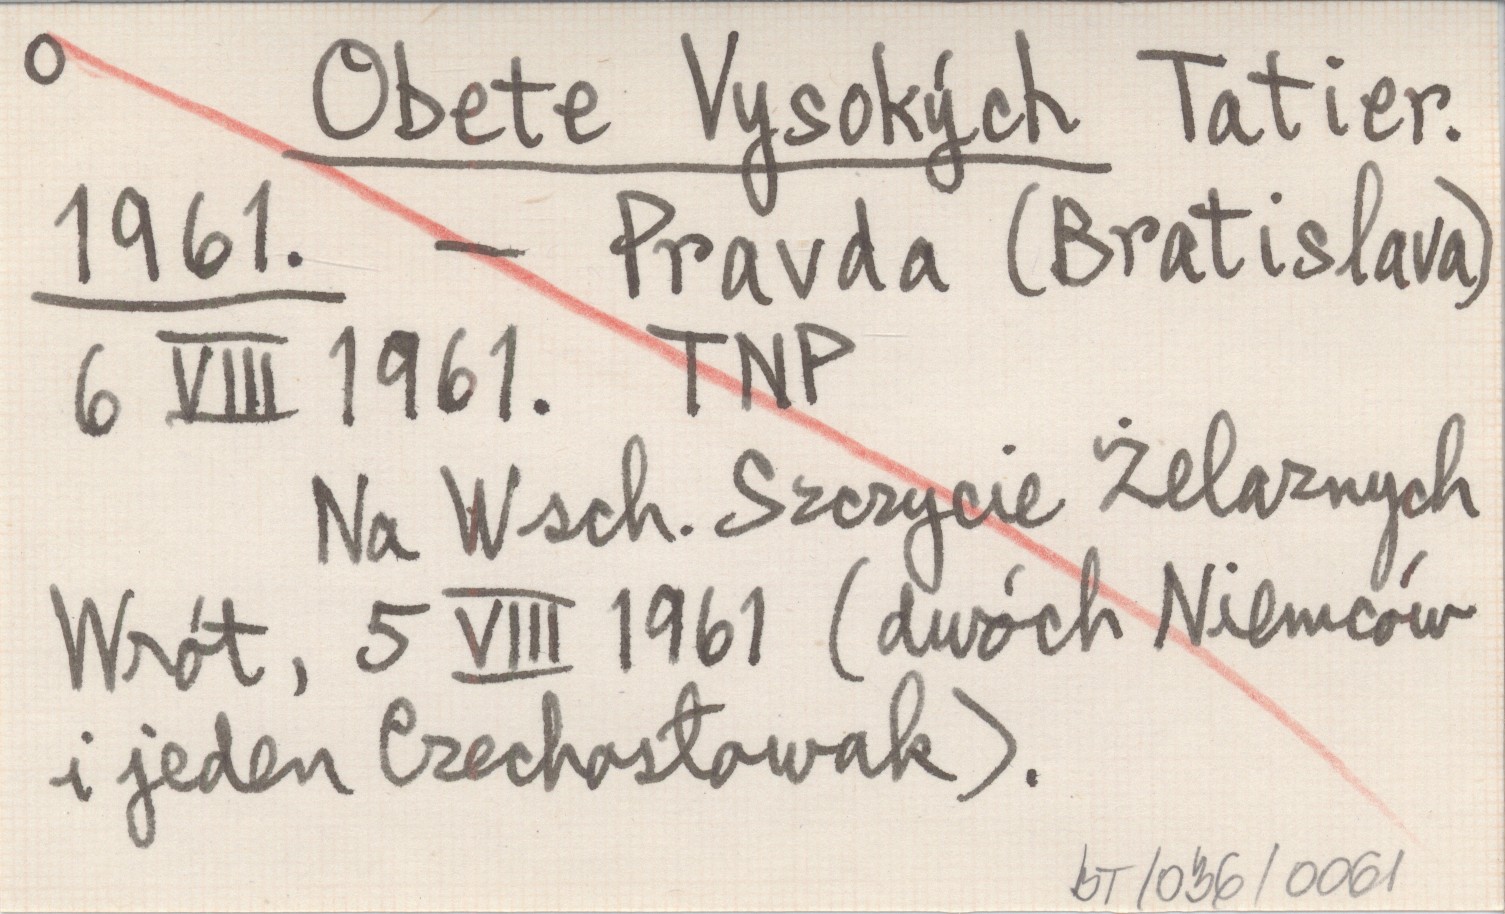 O Obete Vysokých Tatier.
1961. — Pravda (Bratislava)
6 VIII 1961. TNP
Na Wsch. Szczycie Żelaznych
Wrót, 5 VIII 1961 (dwóch Niemców
i jeden Czechosłowak).
BT/036/0061